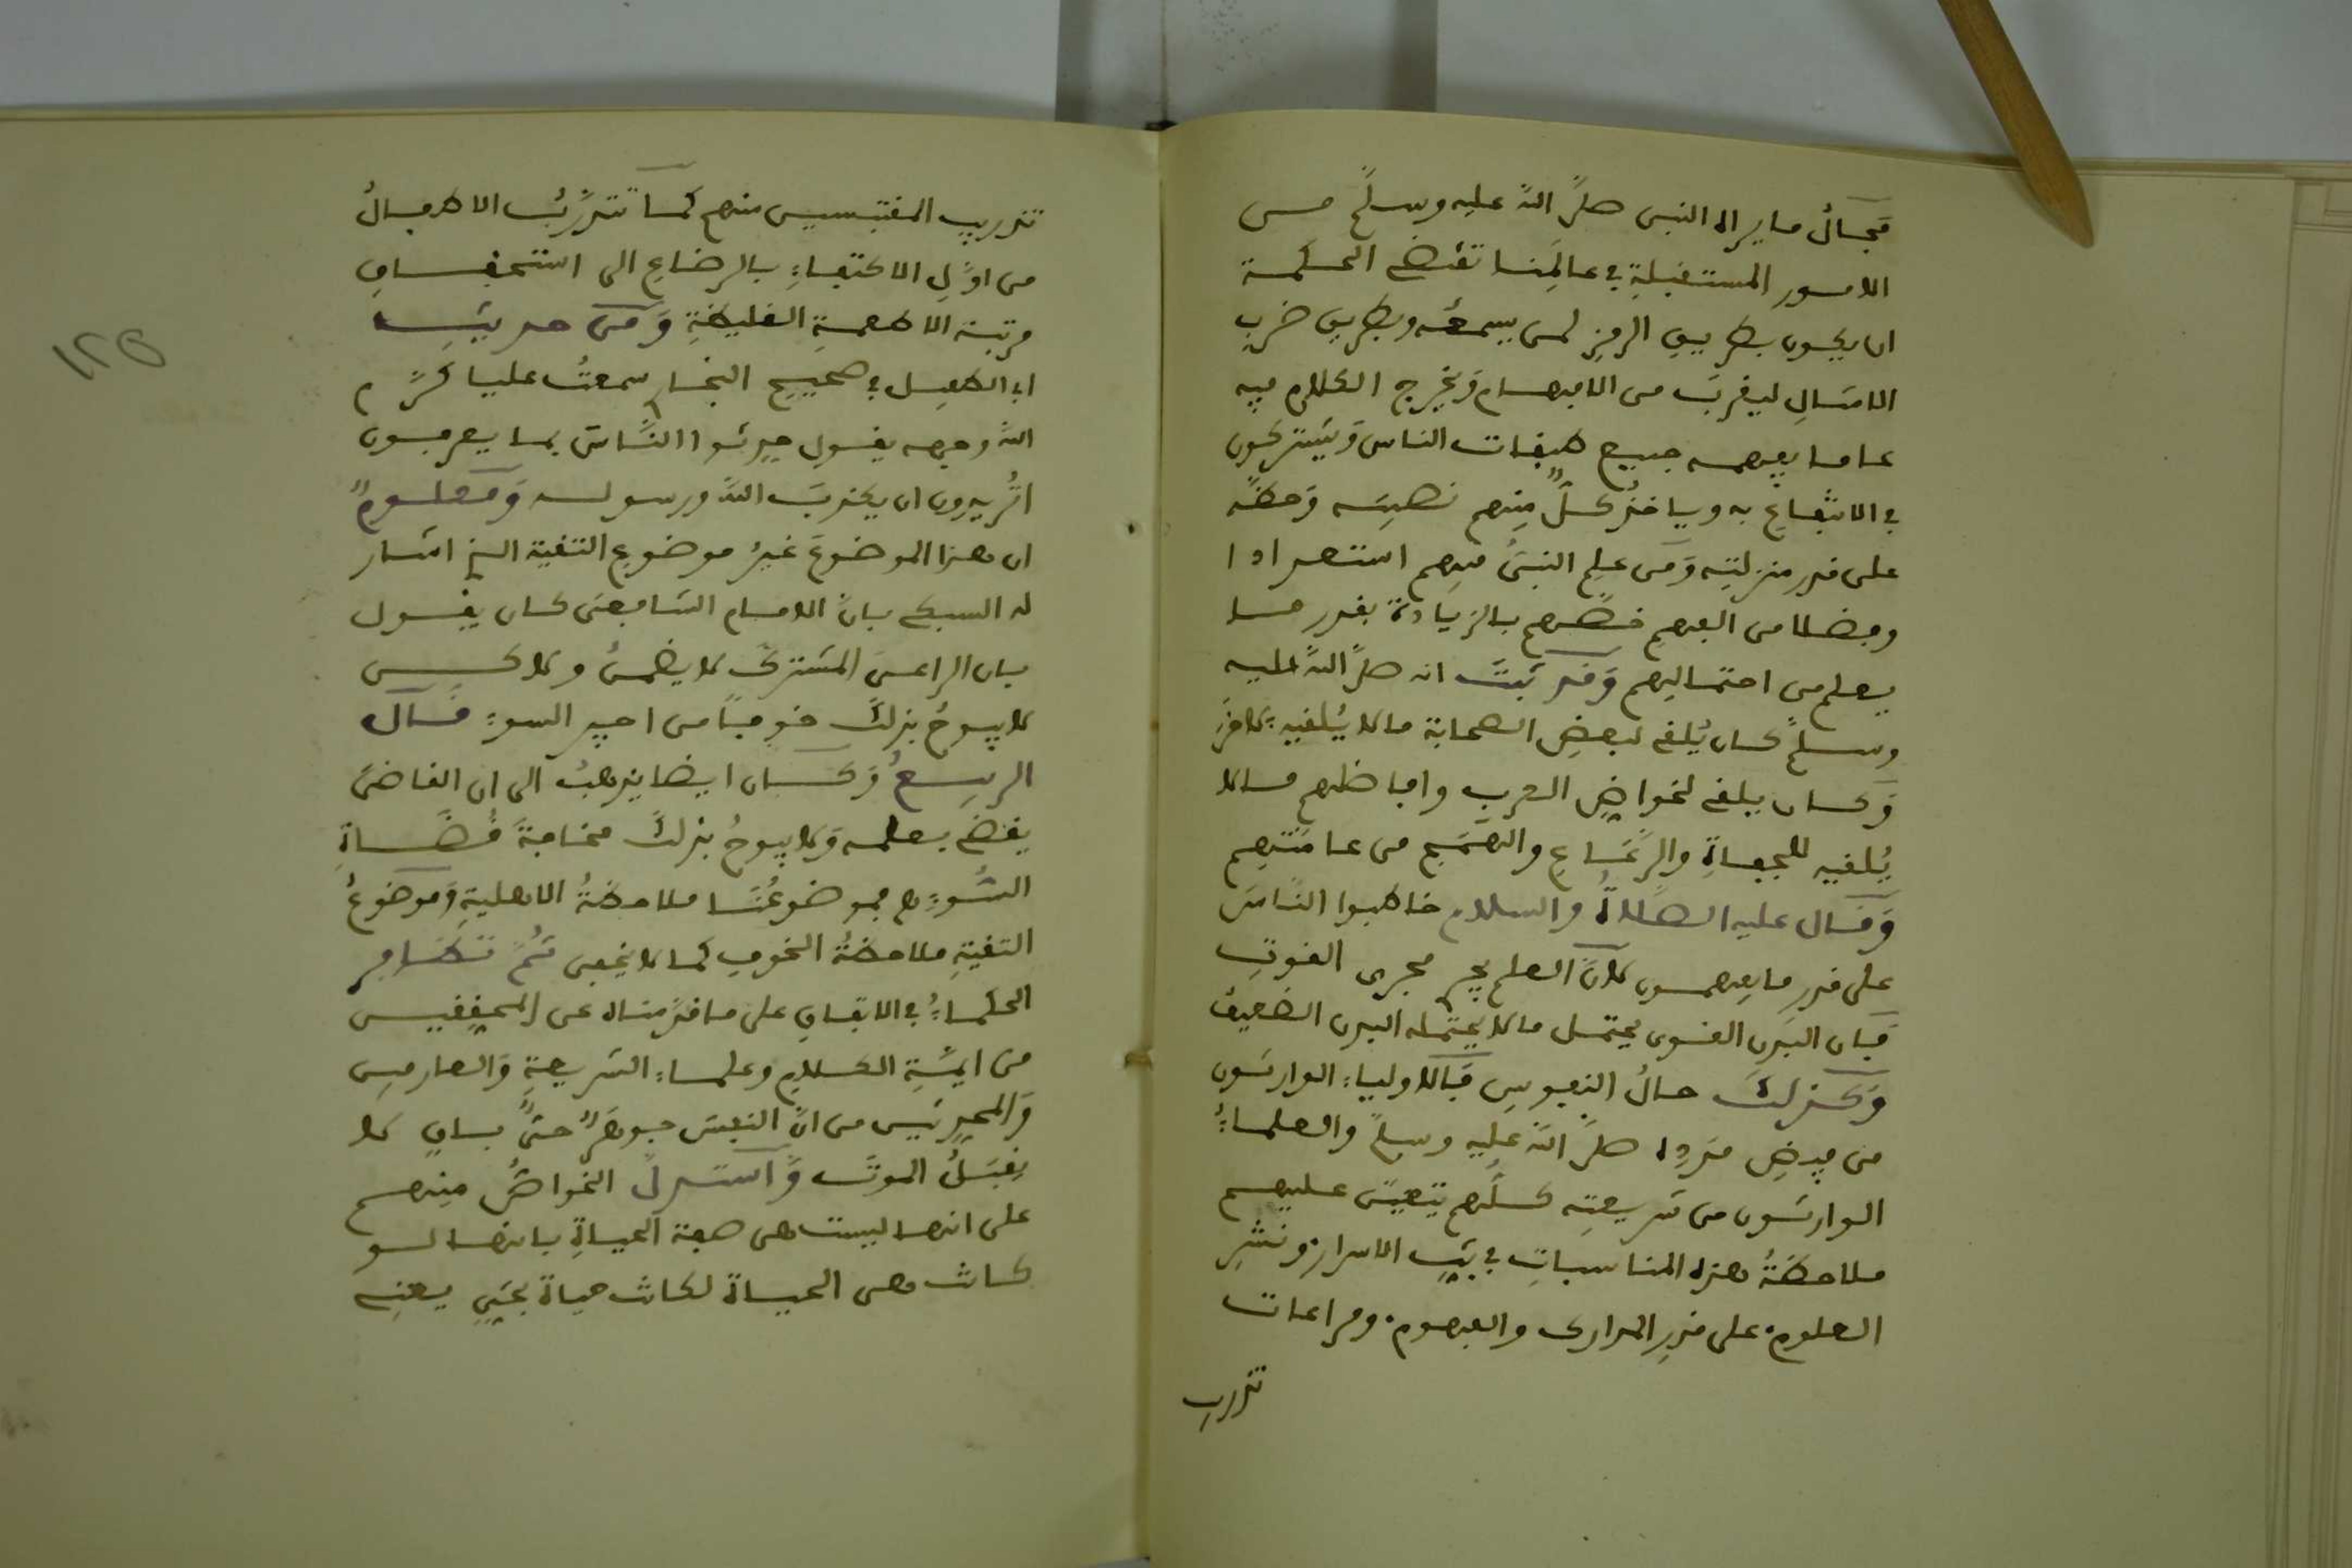 فجائز ما يراه النبي صلى الله عليه وسلم من
الامور المستقبلة في عالمنا تقتضى الحكمة
ان يكون بطريق الرمز لمن يسمعه وبطريق ضرب
الامثال ليقرب من الافهام ويخرج الكلام فيه
عاما يفهمه جميع طبقات الناس ويشتركون
في الانتفاع به وياخذ كل منهم نصيبه وحظه
على قدر منزلته ومن علم النبي فيهم استعدادا
وفضلا من الفهم خصهم بالزيادة بقدر ما
يعلم من احتمالهم وقد ثبت انه صلى الله عليه
وسلم كان يلقى لبعض الصحابة ما لا يلقيه لاخر
وكان يلقى لخواص العرب وافاضلهم ما لا
يلقيه للجفاة والرعاع والهمج من عامتهم
وقال عليه الصلاة والسلام خاطبوا الناس
على قدر ما يفهمون لان العلم يجري مجرى القوت
فان البدن القوى يحتمل ما لا يحتمله البدن الضعيف
وكذلك حال النفوس فالاولياء الوارثون
من فيض مدده صلى الله عليه وسلم والعلماء
الوارثون من شريعته كلهم يتعين عليهم
ملاحظة هذه المناسبات في بث الاسرار ونشر
العلوم على قدر المدارك والفهوم ومراعات
تدريب
تدريب المقتبسين منهم كما تتدرب الاطفال
من اول الاكتفاء بالرضاع الى استحقاق
مرتبة الاطعمة الغليظة ومن حديث
ابى الطفيل في صحيح البخاري سمعت عليا كرم
الله وجهه يقول حدثوا الناس بما يعرفون
اتريدون ان يكذب الله ورسوله ومعلوم
ان هذا الموضوع غير موضوع التقية الذي اشار
له السبكى بان الامام الشافعى كان يقول
بان الراعى المشترك لا يضمن ولاكن
لا يبوح بذلك خوفا من اجير السوء قال
الربيع وكان ايضا يذهب الى ان القاضى
يقضى بعلمه ولا يبوح بذلك مخافة قضاة
السوء فموضوعنا ملاحظة الاهلية وموضوع
التقية ملاحظة الخوف كما لا يخفى ثم تظافر
الحكماء في الاتفاق على ما قدمناه عن المحققين
من ايمة الكلام وعلماء الشريعة والعارفين
والمحدثين من ان النفس جوهر حى باق لا
يقبل الموت واستدل الخواص منهم
على انها ليست هى صفة الحياة بانها لو
كانت هى الحياة لكانت حياة بحى يعنى